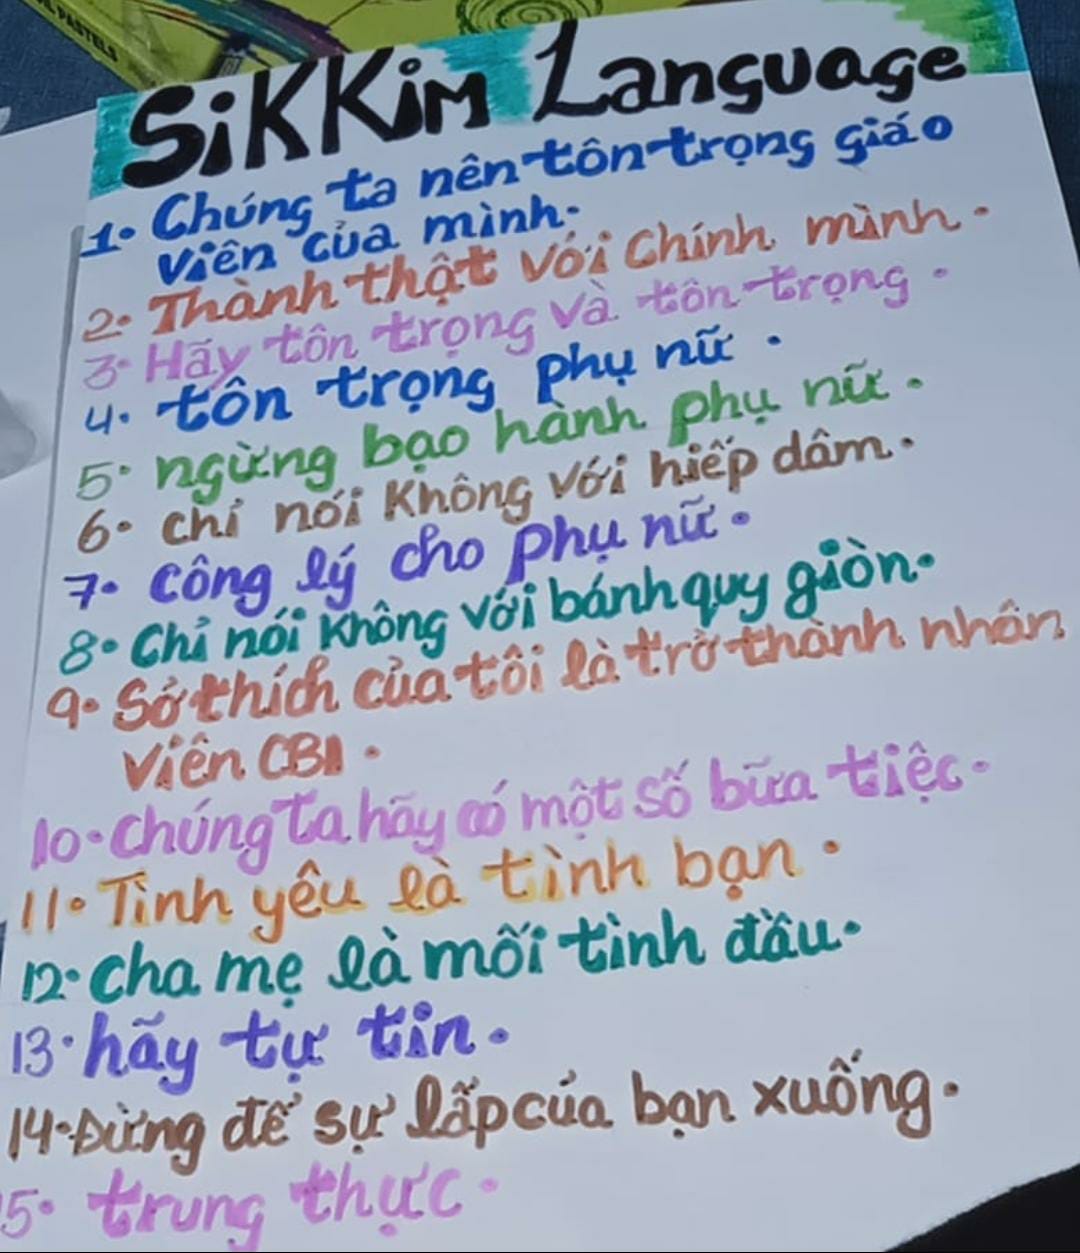 PASTELS
SiKKiM Language
1. Chúng ta nên tôn trọng giáo
viên của mình.
2. Thành thật với Chính mình.
3. Hãy tôn trọng và tôn trọng.
4. tôn trọng phụ nữ.
5. ngừng bạo hành phụ nữ.
6. chỉ nói Không với hiếp dâm.
7. công lý cho phụ nữ.
8. Chỉ nói Không với bánh quy giòn.
9. Sở thích của tôi là trở thành nhân
viên CBI.
10. chúng ta hãy có một số bữa tiệc.
11. Tình yêu là tình bạn.
12. cha mẹ là mối tình đầu.
13. hãy tự tin.
14. Đừng để sự lắp của bạn xuống.
5. trung thực.